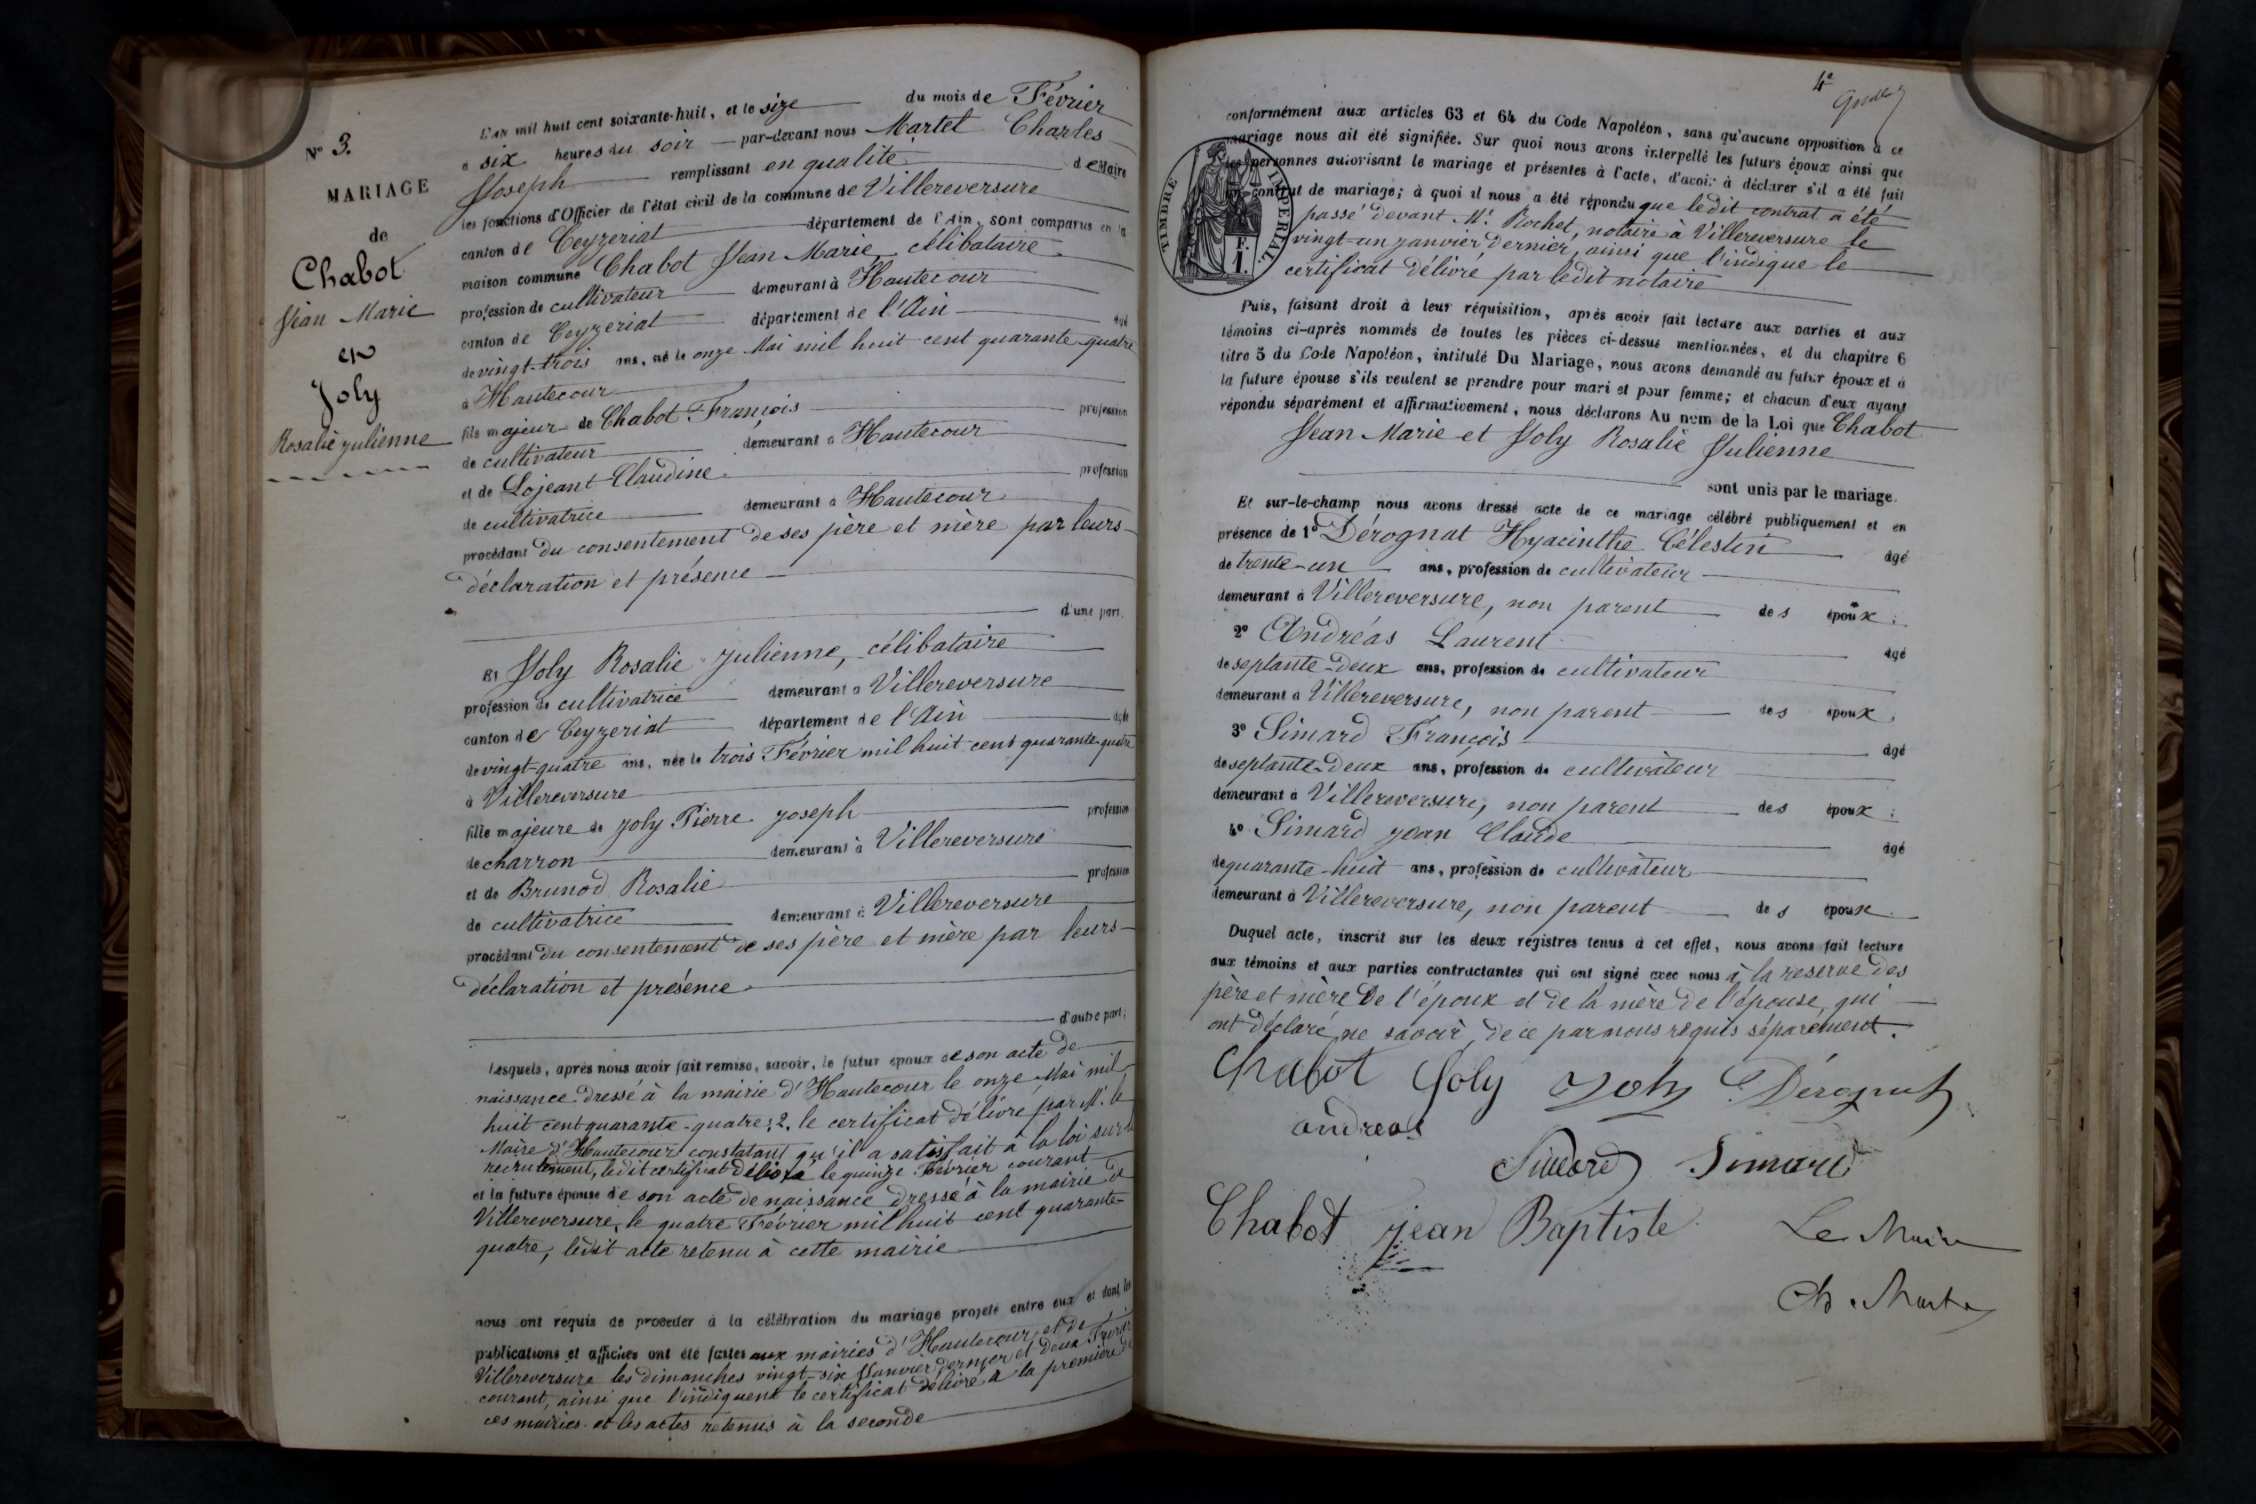 N° 3.
MARIAGE
de
Chabot
Jean Marie
et
Joly
Rosalie Julienne
L'an mil huit cent soixante-huit, et le size du mois de Février
a six heures du soir par-devant nous Martel Charles
Joseph remplissant en qualité de Maire
les fonctions d'Officier de l'état civil de la commune de Villereversure
canton de Ceyzeriat département de l'Ain, sont comparus en la
maison commune Chabot Jean Marie, célibataire
profession de cultivateur demeurant à Hautecour
canton de Ceyzeriat département de l'Ain âgé
de vingt-trois ans, né le onze Mai mil huit cent quarante-quatre
à Hautecour
fils majeur de Chabot François profession
de cultivateur demeurant à Hautecour
et de Lojeant Claudine profession
de cultivatrice demeurant à Hautecour
procédant du consentement de ses père et mère par leurs
déclaration et présence
d'une part.
Et Joly Rosalie Julienne, célibataire
profession de cultivatrice demeurant à Villereversure
canton de Ceyzeriat département de l'Ain âgée
de vingt-quatre ans, née le trois Février mil huit cent quarante-quatre
à Villereversure
fille majeure de Joly Pierre Joseph profession
de charron demeurant à Villereversure
et de Brunod Rosalie profession
de cultivatrice demeurant à Villereversure
procédant du consentement de ses père et mère par leurs
déclaration et présence
d'autre part;
Lesquels, après nous avoir fait remise, savoir, le futur époux de son acte de
naissance dressé à la mairie d'Hautecour le onze Mai mil
huit cent quarante-quatre; 2. le certificat délivré par Mr. le
Maire d'Hautecour constatant qu'il a satisfait à la loi sur le
recrutement, ledit certificat délivré le quinze Février courant
et la future épouse de son acte de naissance dressé à la mairie de
Villereversure, le quatre Février mil huit cent quarante-
quatre, ledit acte retenu à cette mairie
nous ont requis de procéder à la célébration du mariage projeté entre eux et dont les
publications et affiches ont été faites aux mairies d'Hautecour et de
Villereversure les dimanches vingt-six Janvier dernier et deux Février
courant, ainsi que l'indiquent le certificat délivré à la première de
ces mairies et les actes retenus à la seconde
4e
conformément aux articles 63 et 64 du Code Napoléon, sans qu'aucune opposition à ce
mariage nous ait été signifiée. Sur quoi nous avons interpellé les futurs époux ainsi que
les personnes autorisant le mariage et présentes à l'acte, d'avoir à déclarer s'il a été fait
un contrat de mariage; à quoi il nous a été répondu que ledit contrat a été
passé devant Mr. Rochet, notaire à Villereversure le
vingt-un janvier dernier, ainsi que l'indique le
certificat délivré par ledit notaire
TIMBRE IMPERIAL
F.
1.
Puis, faisant droit à leur réquisition, après avoir fait lecture aux parties et aux
témoins ci-après nommés de toutes les pièces ci-dessus mentionnées, et du chapitre 6
titre 5 du Code Napoléon, intitulé Du Mariage, nous avons demandé au futur époux et à
la future épouse s'ils veulent se prendre pour mari et pour femme; et chacun d'eux ayant
répondu séparément et affirmativement, nous déclarons Au nom de la Loi que Chabot
Jean Marie et Joly Rosalie Julienne
sont unis par le mariage.
Et sur-le-champ nous avons dressé acte de ce mariage célébré publiquement et en
présence de 1° Dérognat Hyacinthe Célestin âgé
de trente-un ans, profession de cultivateur
demeurant à Villereversure, non parent des époux;
2° Andréas Laurent âgé
de septante-deux ans, profession de cultivateur
demeurant à Villereversure, non parent des époux;
3° Simard François âgé
de septante-deux ans, profession de cultivateur
demeurant à Villereversure, non parent des époux;
4° Simard Jean Claude âgé
de quarante-huit ans, profession de cultivateur
demeurant à Villereversure, non parent des époux.
Duquel acte, inscrit sur les deux registres tenus à cet effet, nous avons fait lecture
aux témoins et aux parties contractantes qui ont signé avec nous à la reserve des
père et mère de l'époux et de la mère de l'épouse, qui
ont déclaré ne savoir, de ce par nous requis séparément.
Chabot Joly Joly Dérognat
andreas
Simard Simard
Chabot jean Baptiste Le Maire
Ch. Martel